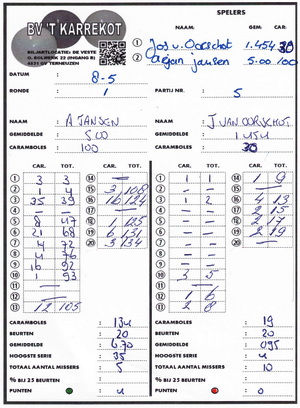 BV 'T KARREKOT
BILJARTLOCATIE: DE VESTE
SPELERS
GEM: CAR.
1 Jos v. Oorschot 1.454 30
2 Arjan jansen 5.00 100
DATUM : 8-5
RONDE : 1 PARTIJ NR. : 5
NAAM : A JANSEN NAAM : J. VAN OORSCHOT
GEMIDDELDE : 500 GEMIDDELDE : 1.454
CARAMBOLES : 100 CARAMBOLES : 30
CAR. TOT. CAR. TOT. CAR. TOT. CAR. TOT.
1 3 3 14 — 1 1 1 14 1 9
2 1 4 15 3 108 2 — 15 —
3 35 39 16 16 124 3 1 2 16 4 13
4 — 17 — 4 — 17 2 15
5 8 47 18 1 125 5 — 18 2 17
6 21 68 19 6 131 6 — 19 2 19
7 4 72 20 3 134 7 — 20 —
8 4 76 8 —
9 16 92 9 —
10 1 93 10 3 5
11 — 11 —
12 12 1 6
13 12 105 13 2 8
CARAMBOLES : 134 CARAMBOLES : 19
BEURTEN : 20 BEURTEN : 20
GEMIDDELDE : 6.70 GEMIDDELDE : 095
HOOGSTE SERIE : 35 HOOGSTE SERIE : 4
TOTAAL AANTAL MISSERS : 5 TOTAAL AANTAL MISSERS : 10
% BIJ 25 BEURTEN : % BIJ 25 BEURTEN :
PUNTEN : 4 PUNTEN : 0